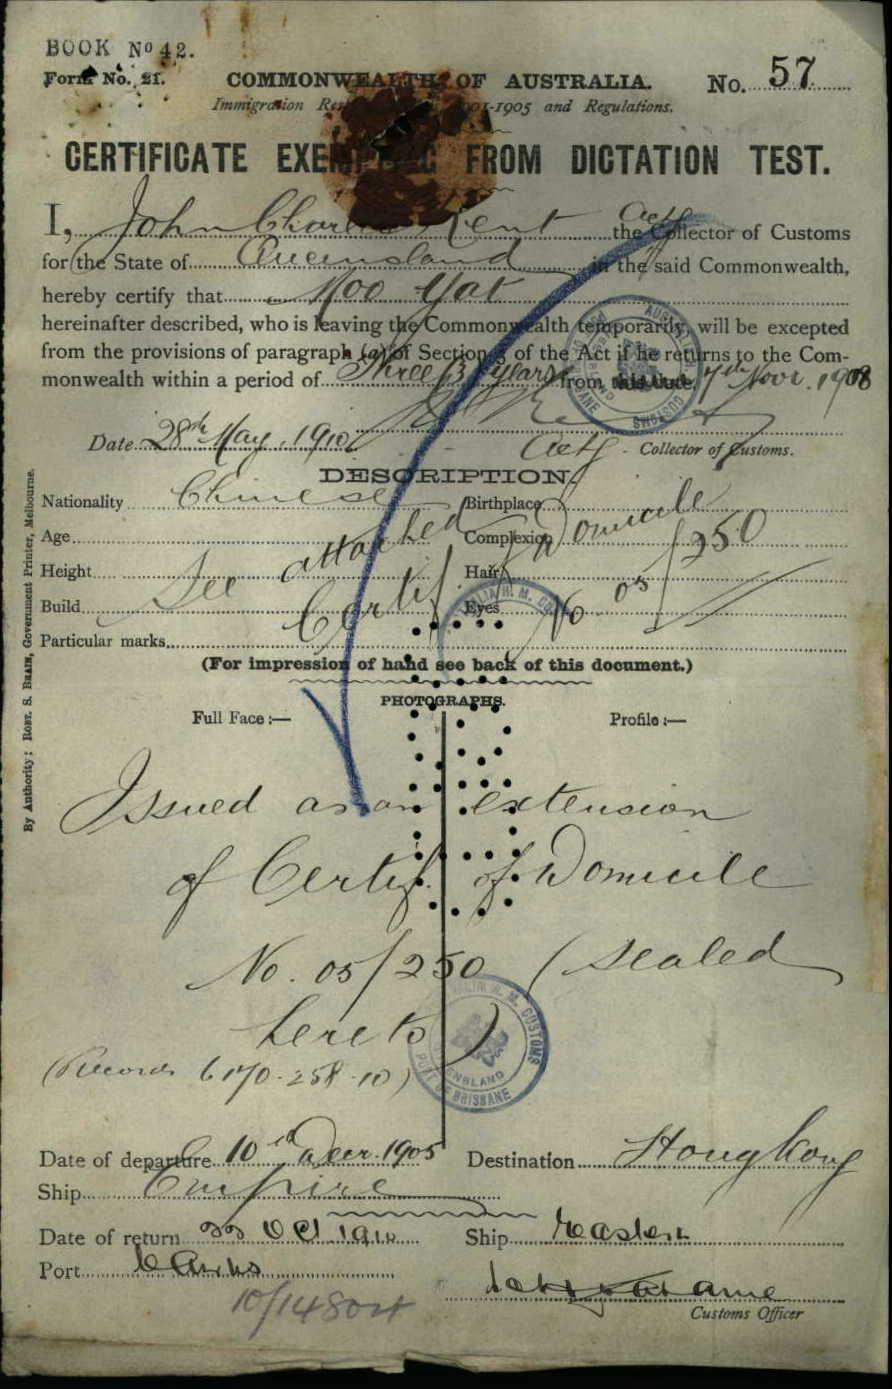 BOOK No 42.
Form No. 21.
COMMONWEALTH OF AUSTRALIA.
No. 57
Immigration 1901-1905 and Regulations.
CERTIFICATE EXEMPTING FROM DICTATION TEST.
I, John Charles Kent Actg the Collector of Customs
for the State of Queensland in the said Commonwealth,
hereby certify that Moo Yat
hereinafter described, who is leaving the Commonwealth temporarily, will be excepted
from the provisions of paragraph (a) of Section 3 of the Act if he returns to the Com-
monwealth within a period of Three (3) years from 7th Novr. 1908
Date 28th May, 1910
Actg - Collector of Customs.
DESCRIPTION.
Nationality Chinese Birthplace
Age Complexion
Height Hair
Build Eyes
See attached Certif Domicile No 05/250
Particular marks
(For impression of hand see back of this document.)
PHOTOGRAPHS.
Full Face :— Profile :—
Issued as an extension
of Certif. of Domicile
No. 05/250 (sealed
hereto)
(Records 258-10)
Date of departure 10th Decr. 1905 Destination Hong Kong
Ship Empire
Date of return 22 Oct 1910 Ship Eastern
Port Cairns
10/14804
Customs Officer
By Authority: ROBT. S. BRAIN, Government Printer, Melbourne.
AUSTRALIA H. M. CUSTOMS
QUEENSLAND
PORT OF BRISBANE